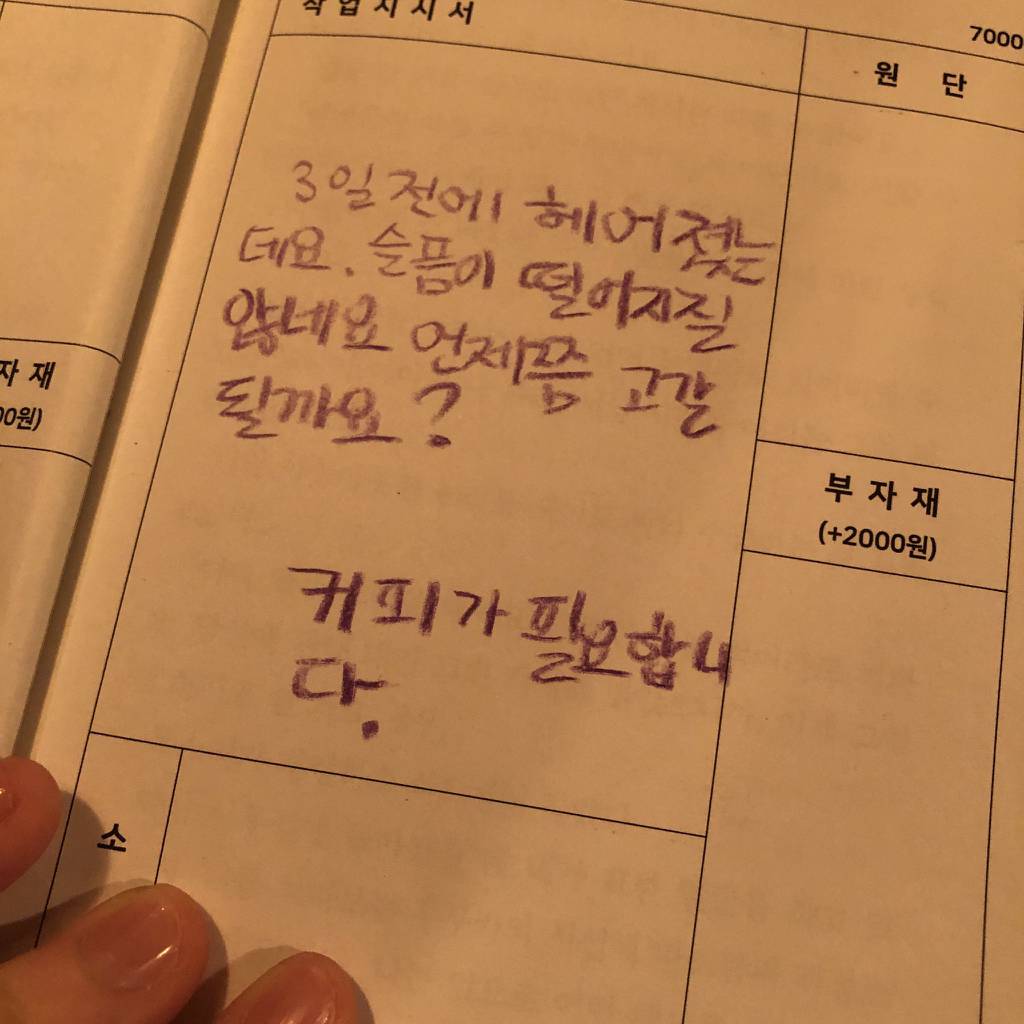 작업지시서
7000
원 단
3일전에 헤어졌는
데요. 슬픔이 떨어지질
않네요 언제쯤 고갈
될까요?
자 재
00원)
부 자 재
(+2000원)
커피가 필요합니
다.
소